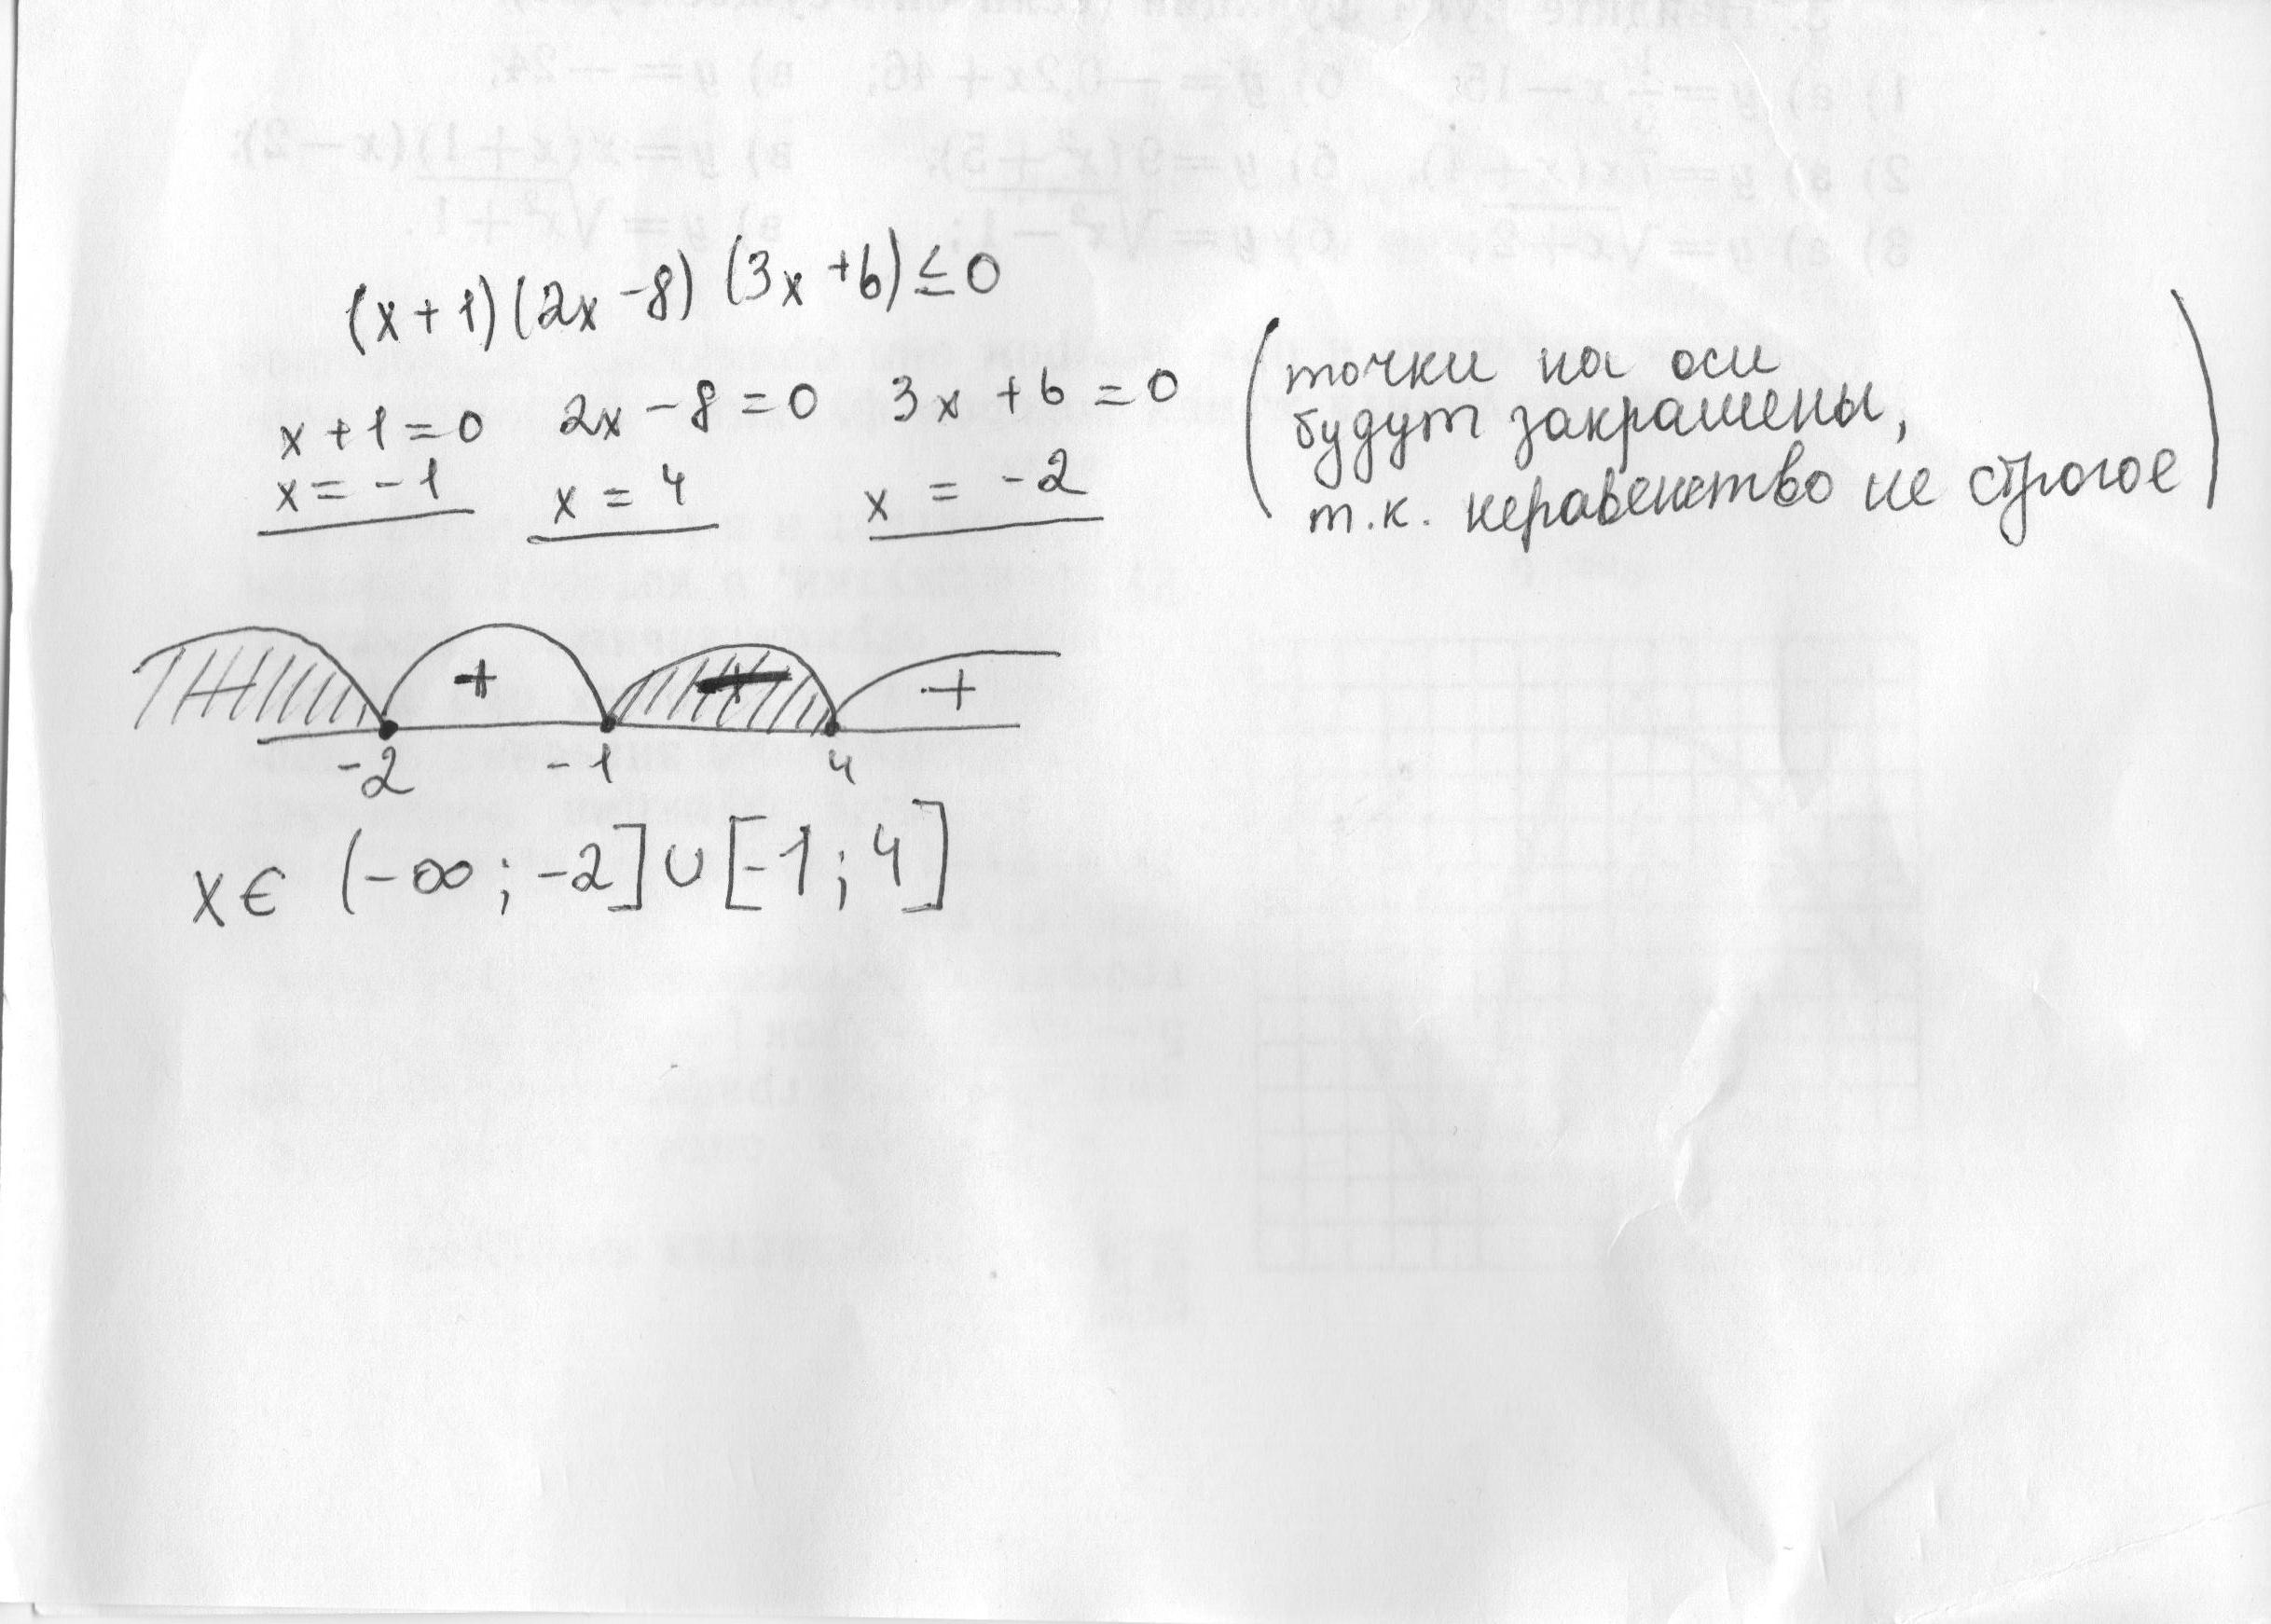 (x+1)(2x-8)(3x+6)≤0
x+1=0 2x-8=0 3x+6=0
x=-1 x=4 x=-2
(точки на оси
будут закрашены,
т.к. неравенство не строгое)
- + - +
-2 -1 4
x∈ (-∞;-2]∪[-1;4]